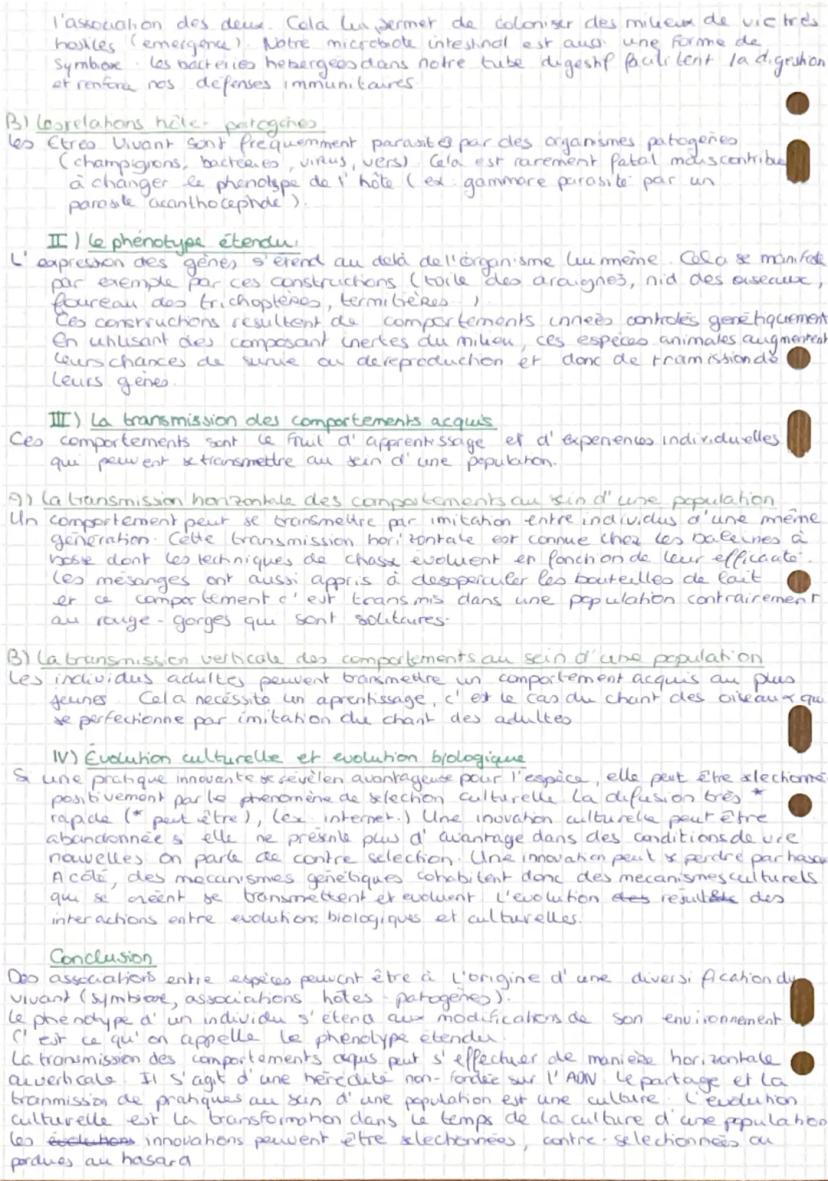 l'association des deux. Cela lui permet de coloniser des milieux de vie très
hostiles (emergence). Notre microbiote intestinal est aussi une forme de
symbiose. Les bactéries hébergées dans notre tube digestif facilitent la digestion
et renforce nos défenses immunitaires
B) Les relations hôte-patogènes
Les Etres Vivant sont frequemment parasités par des organismes patogènes
(champignons, bactéries, virus, vers). Cela est rarement fatal mais contribue
à changer le phenotype de l'hôte (ex: gammare parasité par un
parasite acanthocephale).
II) Le phénotype étendu
L'expression des gènes s'étend au delà de l'organisme lui même. Cela se manifeste
par exemple par ces constructions (toile des araignes, nid des oiseaux,
foureau des trichoptères, termitières)
Ces constructions resultent de comportements innées controlés genétiquement
En utilisant des composant inertes du milieu, ces espèces animales augmentent
leurs chances de survie ou de reproduction et donc de tramission de
leurs gènes.
III) La transmission des comportements acquis
Ces comportements sont le fruit d'apprentissage et d'experiences individuelles
qui peuvent se transmettre au sein d'une population.
A) La transmission horizontale des comportements au sein d'une population
Un comportement peut se transmettre par imitation entre individus d'une même
géneration. Cette transmission horizontale est connue chez les baleines à
bosse dont les techniques de chasse évoluent en fonction de leur efficacité.
Les mésanges ont aussi appris à desoperculer les bouteilles de lait
et ce comportement c'est transmis dans une population contrairement
au rouge-gorges qui sont solitaires.
B) La transmission verticale des comportements au sein d'une population
Les individus adultes peuvent transmettre un comportement acquis au plus
jeunes Cela necéssite un aprentissage, c'est le cas du chant des oiseaux qui
se perfectionne par imitation du chant des adultes
IV) Évolution culturelle et evolution biologique
Si une pratique innovante se révèlen avantageuse pour l'espèce, elle peut être selectionné
positivement par le phenomène de selection culturelle La difusion très *
rapide (* peut être), (ex internet.) Une inovation culturelle peut être
abandonnée si elle ne présente plus d'avantage dans des conditions de vie
nouvelles on parle de contre selection. Une innovation peut se perdre par hasard
A coté, des mecanismes génétiques cohabitent donc des mecanismes culturels
qui se créent se transmettent et evoluent L'evolution des resulte des
interactions entre evolutions biologiques et culturelles.
Conclusion
Des associations entre espèces peuvent être à l'origine d'une diversification du
vivant (symbiose, associations hôtes-patogènes).
Le phenotype d'un individu s'étend aux modifications de son environnement
C'est ce qu'on appelle le phenotype étendu.
La transmission des comportements acquis peut s'effectuer de manière horizontale
ou verticale. Il s'agit d'une hérédité non-fondée sur l'ADN Le partage et la
tranmission de pratiques au sein d'une population est une culture. L'évolution
culturelle est la transformation dans le temps de la culture d'une population
Les évolutions innovations peuvent être selectionnées, contre-selectionnées ou
perdues au hasard